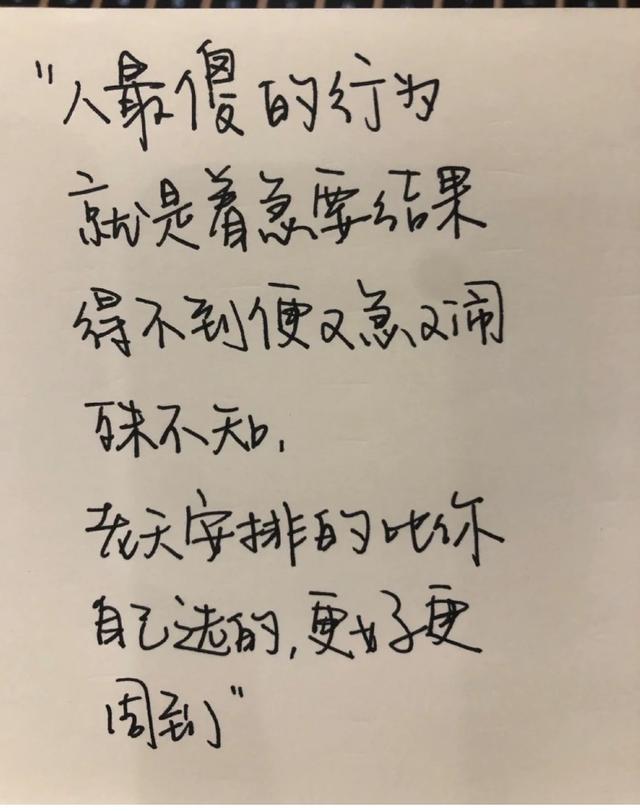 "人最傻的行为
就是着急要结果
得不到便又急又闹
殊不知,
老天安排的比你
自己选的,更好更
周到"